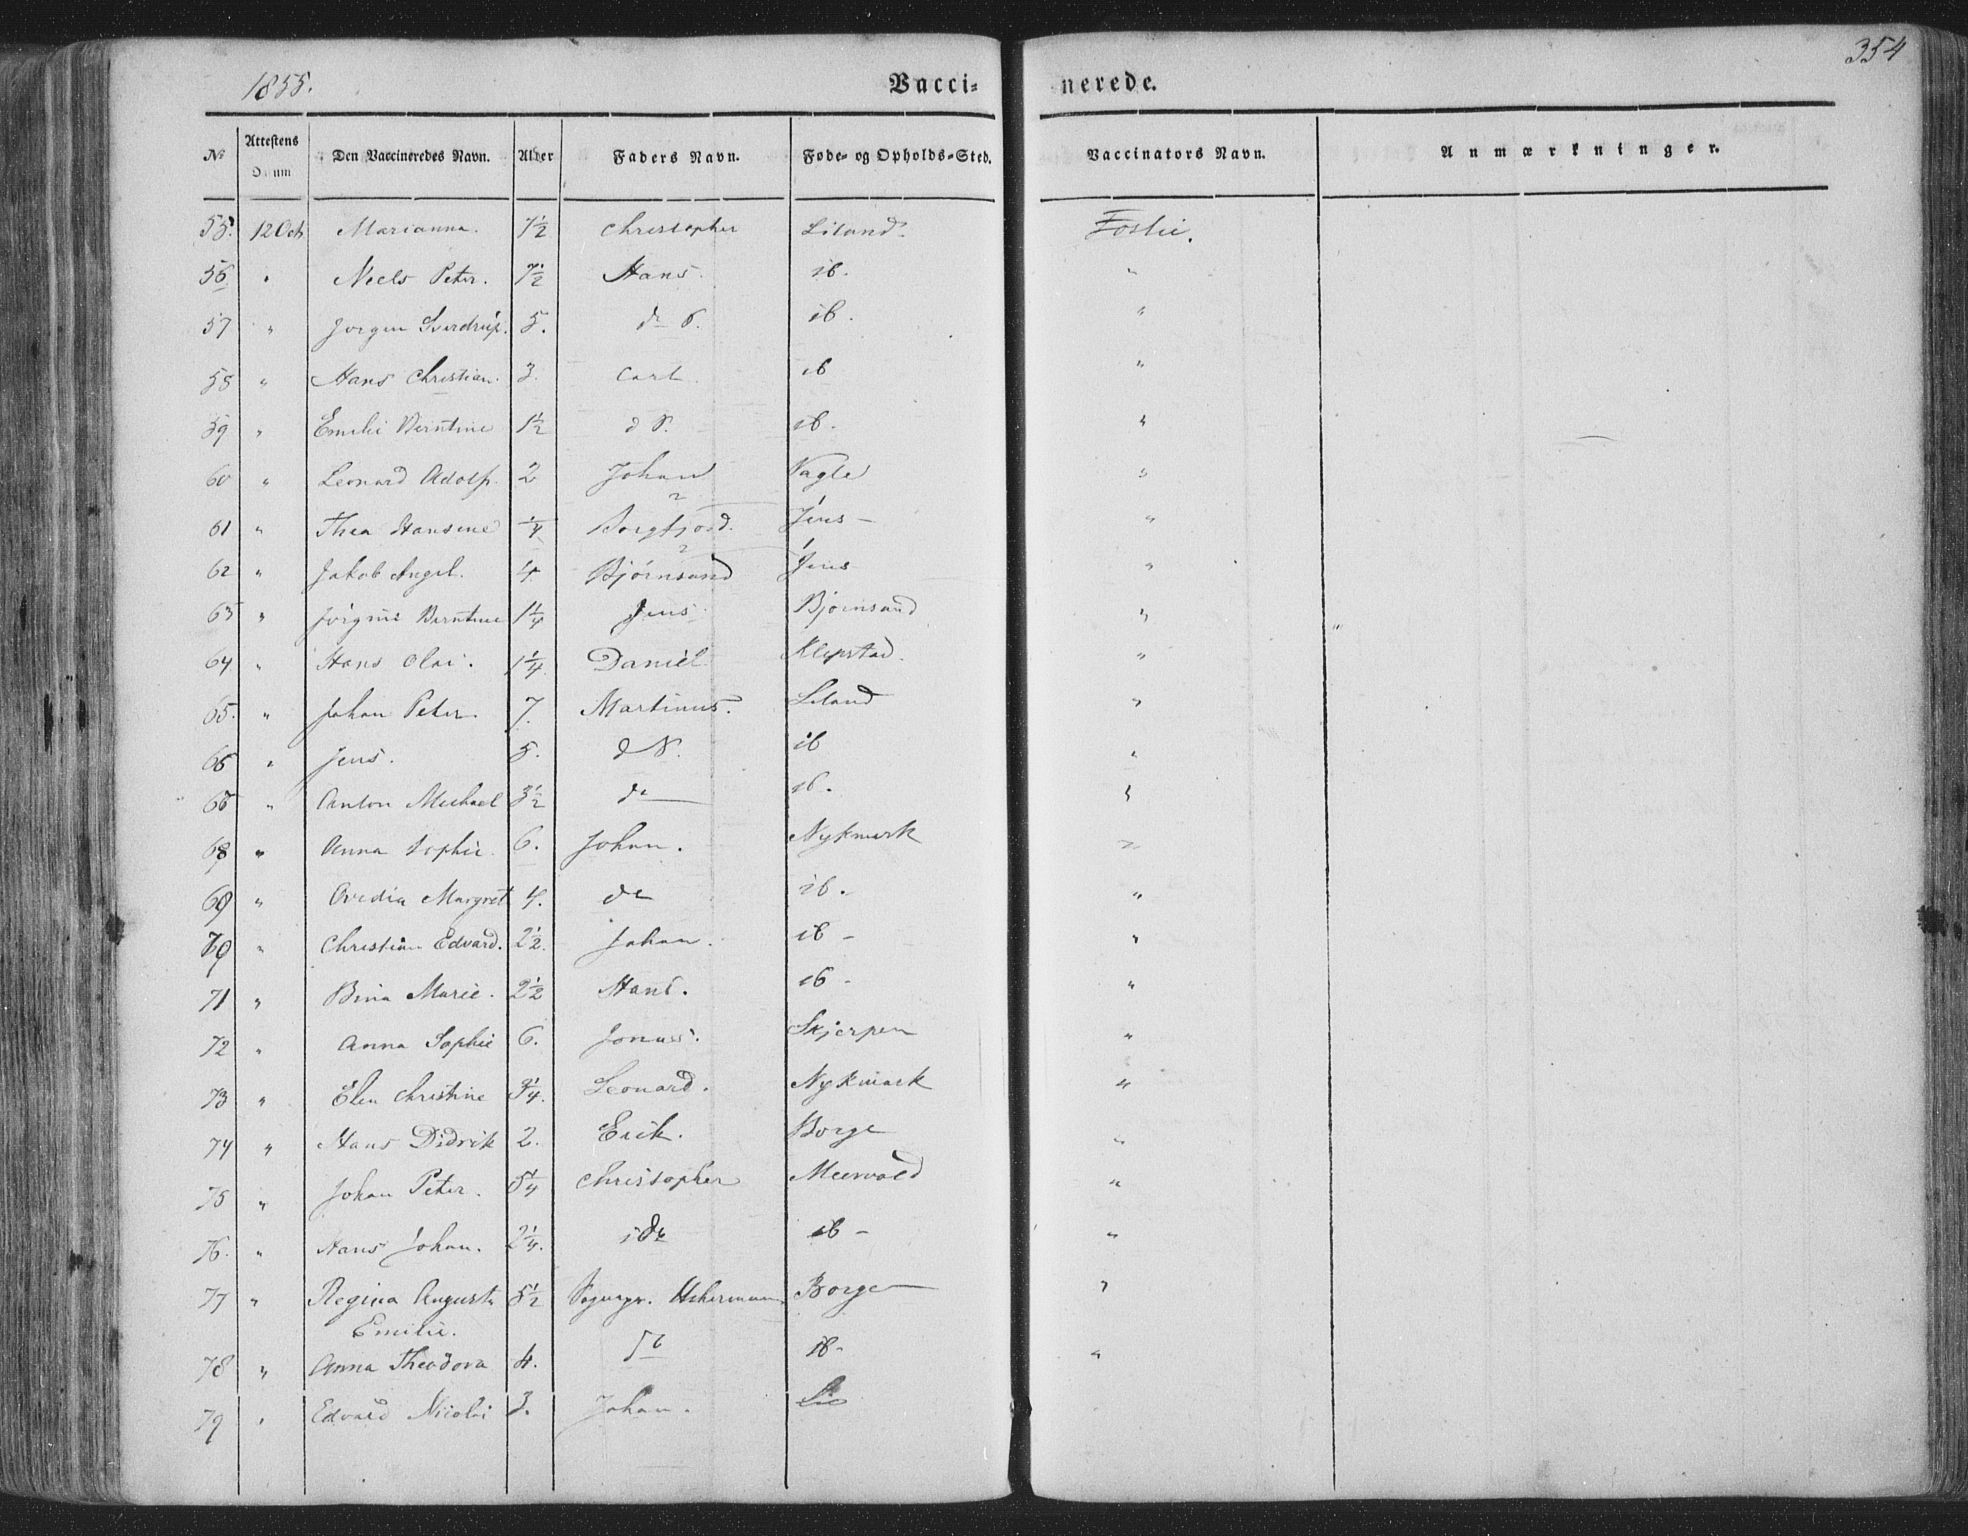 354
1855. Vacci= nerede.
No Attestens Datum Den Vaccineredes Navn. Alder Faders Navn. Føde- og Opholds-Sted. Vaccinators Navn. Anmærkninger.
55. 12 Oct Marianna. 7½ Christopher Liland. Foslie.
56 " Neels Peter. 7½ Hans. ib. "
57 " Jørgen Sverdrup. 5. do ib. "
58 " Hans Christian. 3. Carl ib "
59 " Emelie Berntine 1½ do. ib. "
60 " Leonard Adolf. 2 Johan Vagle "
61 " Thea Hansine ¼ Borgfjord. Jens - "
62 " Jakob Angel. 4. Bjørnsand Jens "
63 " Jørgine Berntine 1¼ Jens Bjørnsand "
64 " Hans Olai. 1¼ Daniel Klepstad. "
65. " Johan Peter. 7. Martinus. Liland "
66 " Jens. 5. do. ib "
67 " Anton Michael 3½ do ib. "
68 " Anna Sophie. 6. Johan. Nykmark "
69 " Ovedia Margret 4. do ib. "
70 " Christian Edvard. 2½. Johan. ib - "
71 " Bina Marie. 2½ Hans. ib - "
72 " Anna Sophie 6. Jonas. Skjerpen "
73 " Elen Christine ¾. Leonard. Nykmark "
74 " Hans Didrik 2. Erik. Borge "
75 " Johan Peter. 5¼ Christopher Meervold "
76. " Hans Johan. 2¼. do ib - "
77 " Regina Augusta 5½ Sognepr. Borge "
Emilie.
78 " Anna Theodora 4. do ib. "
79 " Edvard Nicolai 3. Johan. Lie